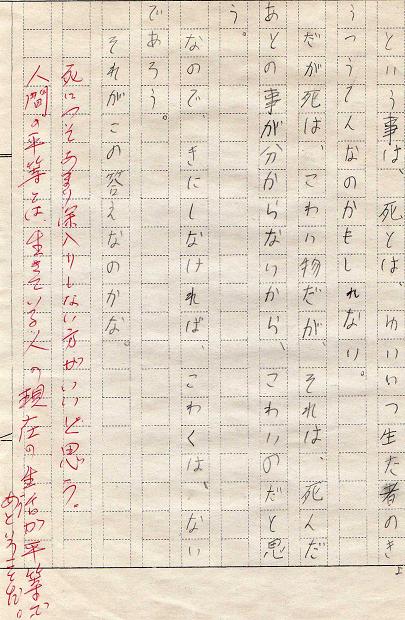 という事は、死とは、ゆいいつ生た者のき
ょうつうてんなのかもしれない。
だが死は、こわい物だが、それは、死んだ
あとの事が分からないから、こわいのだと思
う。
なので、きにしなければ、こわくは、ない
であろう。
それがこの答えなのかな。
死につてあまり深入りしない方がいいと思う。
人間の平等とは、生きている人の現在の生活が平等で
あるということだ。